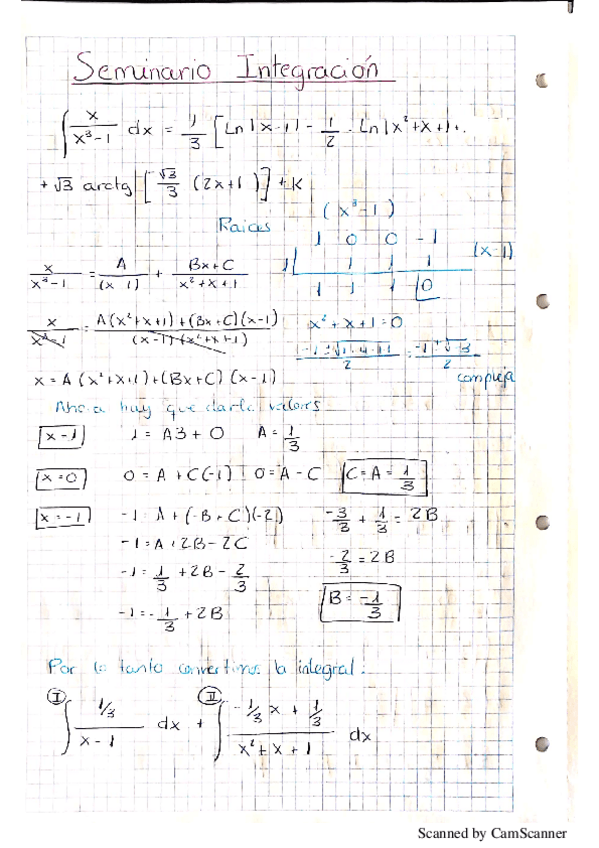 Seminario Integración
∫ x/(x³-1) dx = 1/3 [Ln|x-1| - 1/2 · Ln|x²+x+1| +
+ √3 arctg [√3/3 (2x+1)] + K
Raices
(x³-1)
1 0 0 -1
1| 1 1 1 (x-1)
1 1 1 |0
x/(x³-1) = A/(x-1) + (Bx+C)/(x²+x+1)
x/(x³-1) = (A(x²+x+1)+(Bx+C)(x-1))/((x-1)(x²+x+1))
x²+x+1=0
2 2
compleja
x = A(x²+x+1)+(Bx+C)(x-1)
Ahora hay que darle valores
x=1 1 = A3 + 0 A = 1/3
x=0 0 = A + C(-1) 0 = A - C C = A = 1/3
x=-1 -1 = A + (-B+C)(-2) -3/3 + 1/3 = 2B
-1 = A + 2B - 2C
-2/3 = 2B
-1 = 1/3 + 2B - 2/3
B = -1/3
-1 = -1/3 + 2B
Por lo tanto convertimos la integral:
I ∫ (1/3)/(x-1) dx + II ∫ (-1/3 x + 1/3)/(x²+x+1) dx
Scanned by CamScanner